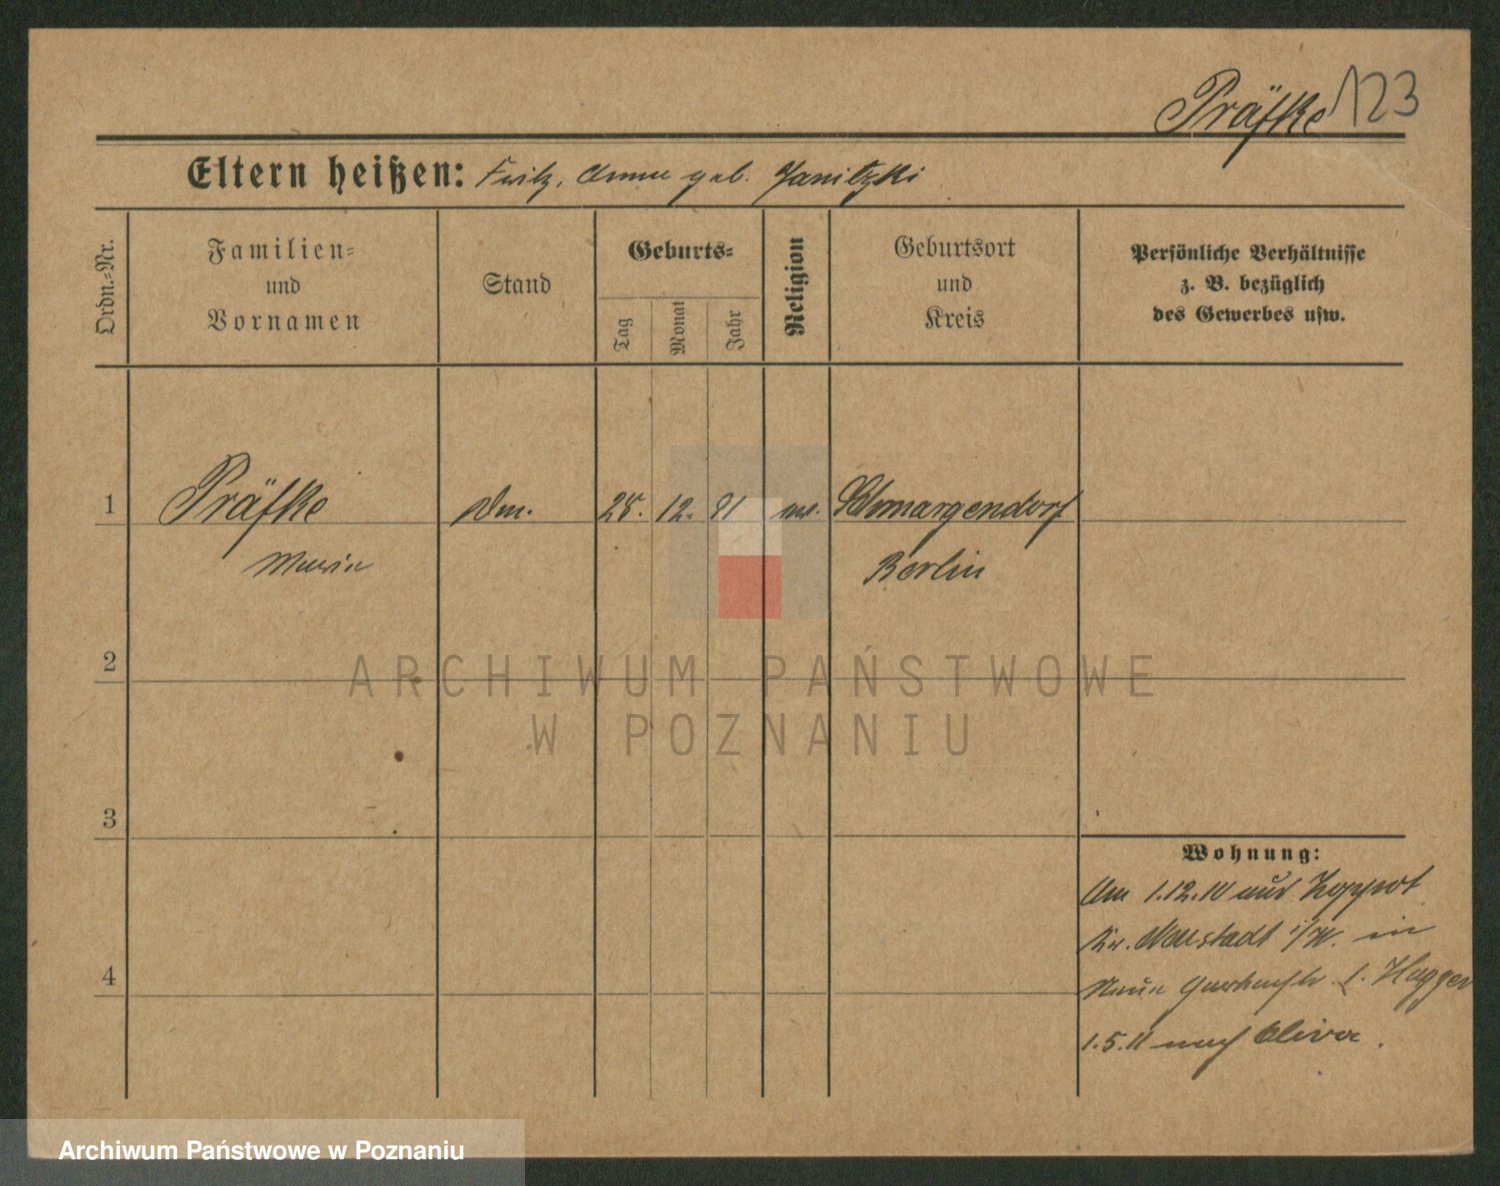 Präfke 123
Eltern heißen: Fritz, Anna geb. Janitzki
Ordn.-Nr.
Familien-
und
Vornamen
Stand
Geburts-
Tag
Monat
Jahr
Religion
Geburtsort
und
Kreis
Persönliche Verhältnisse
z. B. bezüglich
des Gewerbes usw.
1 Präfke 12. 91 Schmargendorf
Maria Berlin
2
ARCHIWUM PAŃSTWOWE
W POZNANIU
3
Wohnung:
Am 1.12.10 aus Zoppot
Kr. Neustadt i/W. in
4
Neue
1.5.11 nach Oliva.
Archiwum Państwowe w Poznaniu